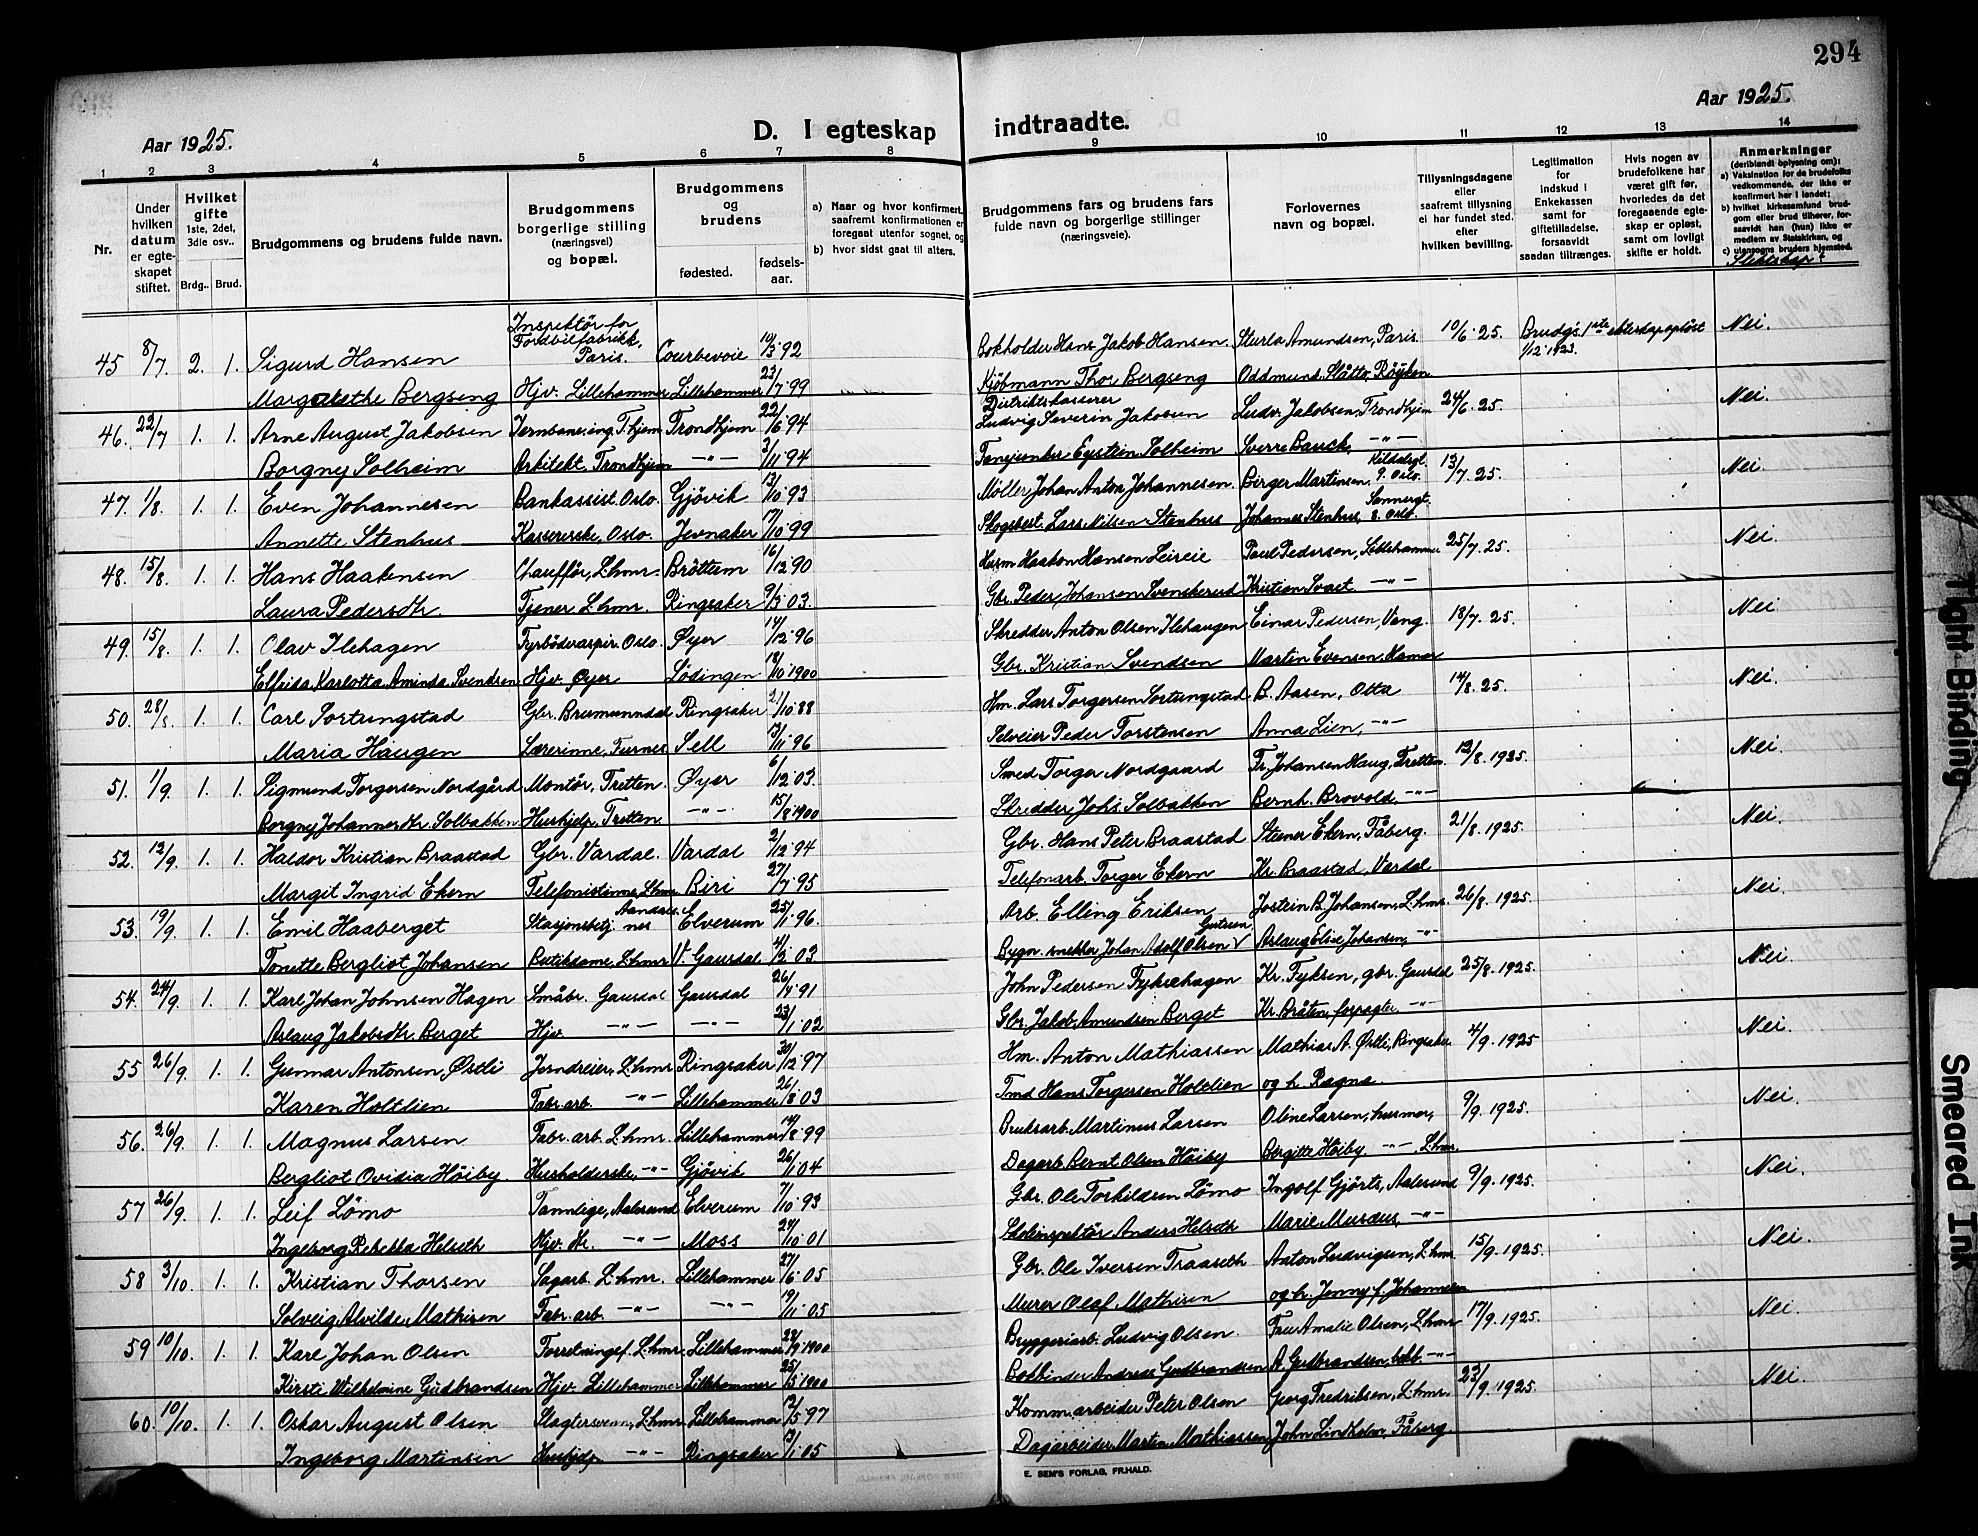 294
Aar 1925.
Aar 1925.
D. I egteskap indtraadte.
1 2 3 4 5 6 7 8 9 10 11 12 13 14
Nr.
Under hvilken datum er egteskapet stiftet.
Hvilket gifte 1ste, 2det, 3die osv..
Brdg.. Brud.
Brudgommens og brudens fulde navn.
Brudgommens borgerlige stilling (næringsvei) og bopæl.
Brudgommens og brudens
fødested.
fødselsaar.
a) Naar og hvor konfirmert, saafremt konfirmationen er foregaat utenfor sognet, og
b) hvor sidst gaat til alters.
Brudgommens fars og brudens fars fulde navn og borgerlige stillinger (næringsveie).
Forlovernes navn og bopæl.
Tillysningsdagene eller saafremt tillysning ei har fundet sted, efter hvilken bevilling.
Legitimation for indskud i Enkekassen samt for giftetilladelse, forsaavidt saadan tiltrænges.
Hvis nogen av brudefolkene har været gift før, hvorledes da det foregaaende egteskap er opløst, samt om lovligt skifte er holdt.
Anmerkninger (deriblandt oplysning om):
a) Vaksination for de brudefolks vedkommende, der ikke er konfirmert her i landet;
b) hvilket kirkesamfund brudgom eller brud tilhører, forsaavidt han (hun) ikke er medlem av Statskirken, og
c) utensogns bruders hjemsted.
Slektskap?
45 8/7. 2. 1. Sigurd Hansen Inspektør for Fordbilfabrikk, Paris. Courbevoie 10/3 92 Bokholder Hans Jakob Hansen. Sturla Amundsen, Paris. 10/6 25. Brudg's 1ste ekteskap opløst 1/12 1923. Nei.
Margarethe Bergseng Hjv. Lillehammer Lillehammer 23/7 99 Kjøbmann Thor Bergseng Oddmund Slåtto, Røyken
46. 22/7 1. 1. Arne August Jakobsen Jernbane.ing. T.hjem Trondhjem 22/6 94 Distriktskasserer Ludvig Severin Jakobsen Ludv. Jakobsen, Trondhjem 24/6. 25. Nei.
Borgny Solheim Arkitekt, Trondhjem —"— 3/11 94 Fanejunker Eystein Solheim Sverre Bauck, —"—
47. 1/8. 1. 1. Even Johannesen Bankassist. Oslo. Gjøvik 13/10 93 Møller Johan Anton Johannesen. Birger Martinsen, 13/7. 25. Nei.
Annette Stenhus Kassererske, Oslo. Jevnaker 17/10 99 Skogsbest. Lars Nilsen Stenhus Johannes Stenhus,
48. 15/8. 1. 1. Hans Haakensen Chauffør, L.hmr. Brøttum 16/12 90 Husm. Haakon Hansen Leireie Paul Pedersen, Lillehammer 25/7. 25. Nei.
Laura Pedersdtr. Tjener L.hmr. Ringsaker 9/3 03. Gbr. Peder Johansen Svenskerud Kristian Svaet —"—
49. 15/8. 1. 1. Olav Ilehagen Fyrbøderaspir. Oslo. Øyer 14/12 96 Skredder Anton Olsen Ilehaugen Einar Pedersen, Vang. 18/7. 25. Nei
Elfeida Karlotta Aminda Svendsen Hjv. Øyer Lødingen 18/10 1900 Gbr. Kristian Svendsen Martin Evensen, Hamar
50. 28/8 1. 1. Carl Sortungstad Gbr. Brumunndal Ringsaker 21/10 88 Hm. Lars Torgersen Sortungstad B. Aasen, Otta 14/8. 25. Nei.
Maria Haugen Lærerinne, Furnes Sell 13/11 96 Selveier Peder Torstensen Anna Lien, —"—
51. 1/9. 1. 1. Sigmund Torgersen Nordgård Montør, Tretten. Øyer 6/12 03. Smed Torger Nordgaard Fr. Johansen Haug, Tretten 13/8. 1925. Nei.
Borgny Johannesdtr. Solbakken Hushjelp, Tretten —"— 15/8 1900 Skredder Johs. Solbakken Bernh. Brovold, —"—
52. 12/9. 1. 1. Haldor Kristian Braastad Gbr. Vardal. Vardal 2/12 94 Gbr. Hans Peter Braastad Steener Ekern, Fåberg. 21/8. 1925. Nei.
Margit Ingrid Ekern Telefonistinne, L.hmr. Biri 27/7 95 Telefonarb. Torger Ekern Kr. Braastad, Vardal
53. 19/9. 1. 1. Emil Haaberget Stasjonsbetj. Aandalsnes Elverum 25/1 96. Arb. Elling Eriksen Jostein B. Johansen, L.hmr. 26/8. 1925. Nei.
Tonette Bergliot Johansen Butikdame, L.hmr. V. Gausdal 4/2 03 Bygn. snekker Johan Adolf Olsen Aslaug Elise Johansen, —"—
54. 24/9. 1. 1. Karl Johan Johnsen Hagen Småbr. Gausdal Gausdal 26/4 91 John Pedersen Fyksehagen Kr. Fyksen, gbr. Gausdal 25/8. 1925. Nei.
Aslaug Jakobsdtr. Berget Hjv. —"— —"— 23/1 02 Gbr. Jakob Amundsen Berget Kr. Bråten, forpagter —"—
55 26/9. 1. 1. Gunnar Antonsen Østli Jerndreier, L.hmr. Ringsaker 30/12 97 Hm. Anton Mathiassen Mathias A. Østli, Ringsaker 4/9. 1925 Nei.
Karen Holtlien Fabr. arb. —"— Lillehammer 26/8 03 Tmd Hans Torgersen Holtlien og h. Ragna
56. 26/9. 1. 1. Magnus Larsen Fabr. arb. L.hmr. Lillehammer 14/8 99 Bruksarb. Martinus Larsen Oline Larsen, husmor, 9/9. 1925. Nei.
Bergliot Ovidia Høiby. Husholderske, —"— Gjøvik 26/1 04 Dagarb. Bernt Olsen Høiby Bergitte Høiby —"— L.hmr.
57 26/9. 1. 1. Leif Lømo Tannlege, Aalesund Elverum 7/10 93 Gbr. Ole Torkildsen Lømo Ingolf Gjørtz, Aalesund 9/9. 1925. Nei.
Ingeborg Rebekka Helseth Hjv. —"— Moss 24/10 01 Skoleinspektør Anders Helseth Marie Musæus, —"—
58 3/10. 1. 1. Kristian Thorsen Sagarb. L.hmr. Lillehammer 27/6 05 Gbr. Ole Iversen Traaseth Anton Ludvigsen, L.hmr. 15/9. 1925. Nei.
Solveig Alvilde Mathisen Fabr. arb. —"— —"— 19/11 05 Murer Olaf Mathisen og h. Jenny f. Johannesen
59 10/10. 1. 1. Karl Johan Olsen Forretningsf. L.hmr. Lillehammer 28/9 1900 Bryggeriarb. Ludvig Olsen. Fru Amalie Olsen, L.hmr. 17/9. 1925. Nei.
Kirsti Wilhelmine Gudbrandsen Hjv. Lillehammer Lillehammer 25/5 1900 Bokbinder Andreas Gudbrandsen A. Gudbrandsen, bokb. —"—
60 10/10. 1. 1. Oskar August Olsen Slagtersvenn, L.hmr. Lillehammer 12/5 97 Komm. arbeider Peter Olsen Georg Fredriksen, L.hmr. 23/9. 1925. Nei.
Ingeborg Martinsen Hushjelp —"— Ringsaker 13/1 05 Dagarbeider Martin Mathiassen John Lindholm, Fåberg.
E. SEM'S FORLAG, FR.HALD.
Tight Binding
Smeared Ink